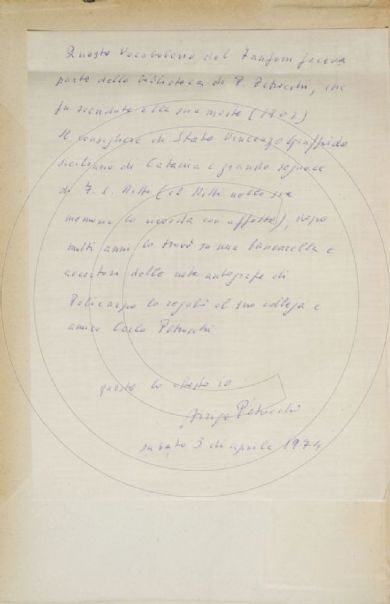 Questo Vocabolario del Fanfani faceva
parte della biblioteca di P. Petrocchi, che
fu venduta alla sua morte (1902)
Il consigliere di Stato Vincenzo Giuffrida
siciliano di Catania e grande seguace
di F. S. Nitti (il Nitti nelle sue
memorie lo ricorda con affetto), dopo
molti anni lo trovò su una bancarella e
accortosi delle note autografe di
Policarpo lo regalò al suo collega e
amico Carlo Petrocchi
questo lo attesto io
Petrocchi
sabato 3 di aprile 1974